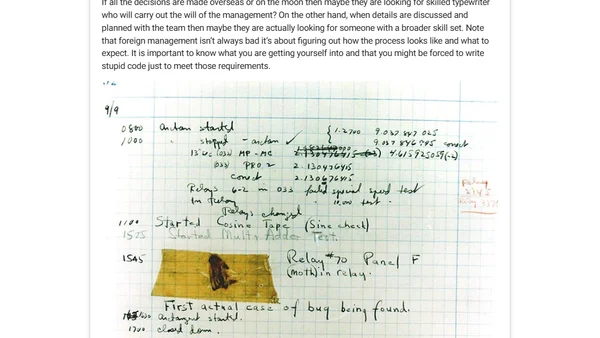 If all the decisions are made overseas or on the moon then maybe they are looking for skilled typewriter
who will carry out the will of the management? On the other hand, when details are discussed and
planned with the team then maybe they are actually looking for someone with a broader skill set. Note
that foreign management isn't always bad it's about figuring out how the process looks like and what to
expect. It is important to know what you are getting yourself into and that you might be forced to write
stupid code just to meet those requirements.
9/9
0800 Antan started
1000 " stopped - antan ✓
{ 1.2700 9.037 847 025
9.037 846 995 correct
13"uc (032) MP - MC 2.130476415 (-3) 4.615925059(-2)
(033) PRO 2 2.130476415
correct 2.130676415
Relays 6-2 in 033 failed special speed test
in relay " 11.000 test.
Relays changed
Relay
1100 Started Cosine Tape (Sine check)
1525 Started Mult+ Adder Test.
1545 Relay #70 Panel F
(moth) in relay.
First actual case of bug being found.
1630 antangent started.
1700 closed down.